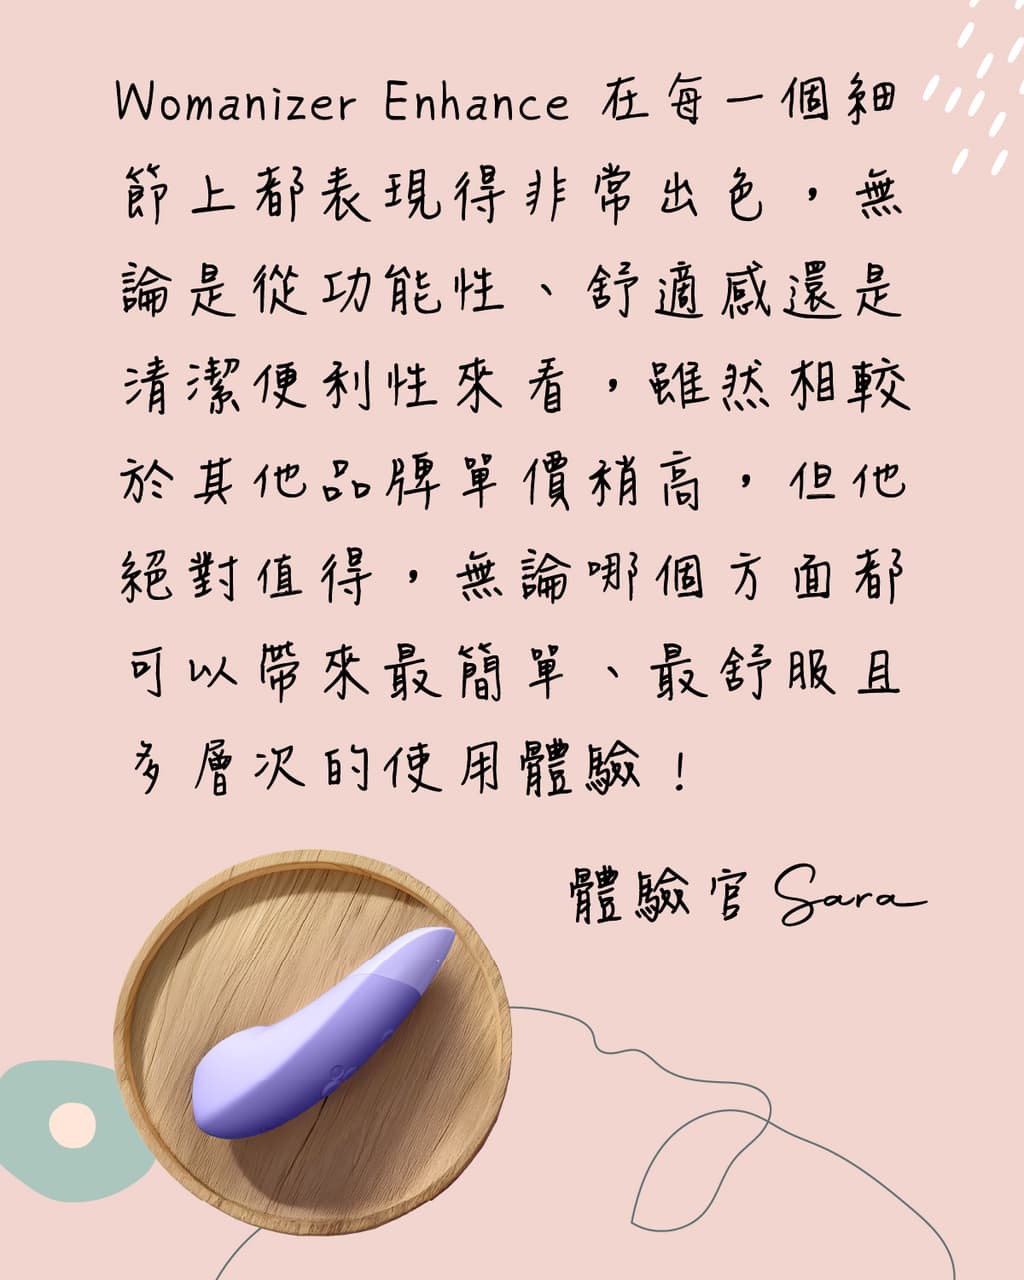 Womanizer Enhance 在每一個細
節上都表現得非常出色，無
論是從功能性、舒適感還是
清潔便利性來看，雖然相較
於其他品牌單價稍高，但他
絕對值得，無論哪個方面都
可以帶來最簡單、最舒服且
多層次的使用體驗！
體驗官 Sara